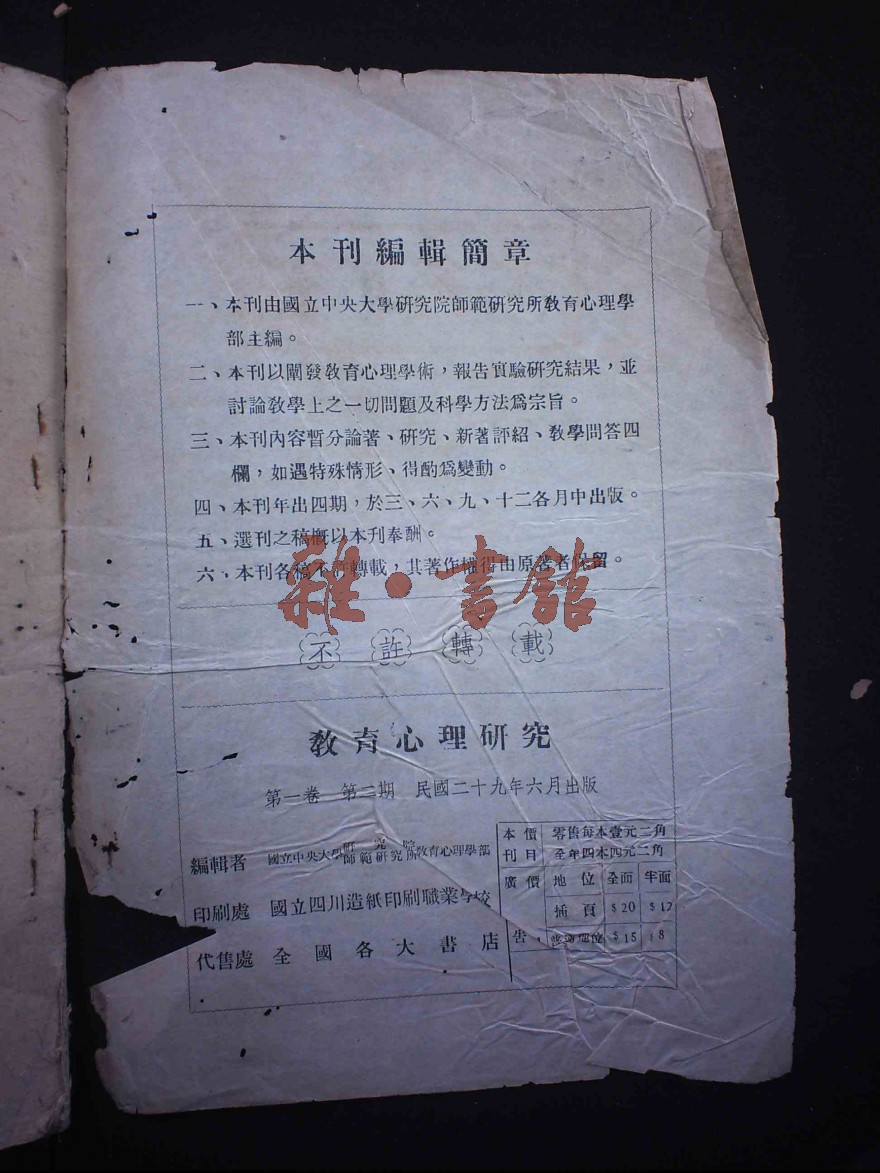 本刊編輯簡章
一、本刊由國立中央大學研究院師範研究所教育心理學
部主編。
二、本刊以闡發教育心理學術，報告實驗研究結果，並
討論教學上之一切問題及科學方法爲宗旨。
三、本刊內容暫分論著、研究、新著評紹、教學問答四
欄，如遇特殊情形、得酌爲變動。
四、本刊年出四期，於三、六、九、十二各月中出版。
五、選刊之稿概以本刋奉酬。
六、本刊各稿不許轉載，其著作權得由原著者保留。
雅·書館
不許轉載
教育心理研究
第一卷 第二期 民國二十九年六月出版
編輯者 國立中央大學研究院師範研究所教育心理學部
印刷處 國立四川造紙印刷職業學校
代售處 全國各大書店
本刊價目 零售每本壹元二角
全年四本四元二角
廣告價 地位 全面 半面
插頁 $20 $12
普通地位 $15 $8